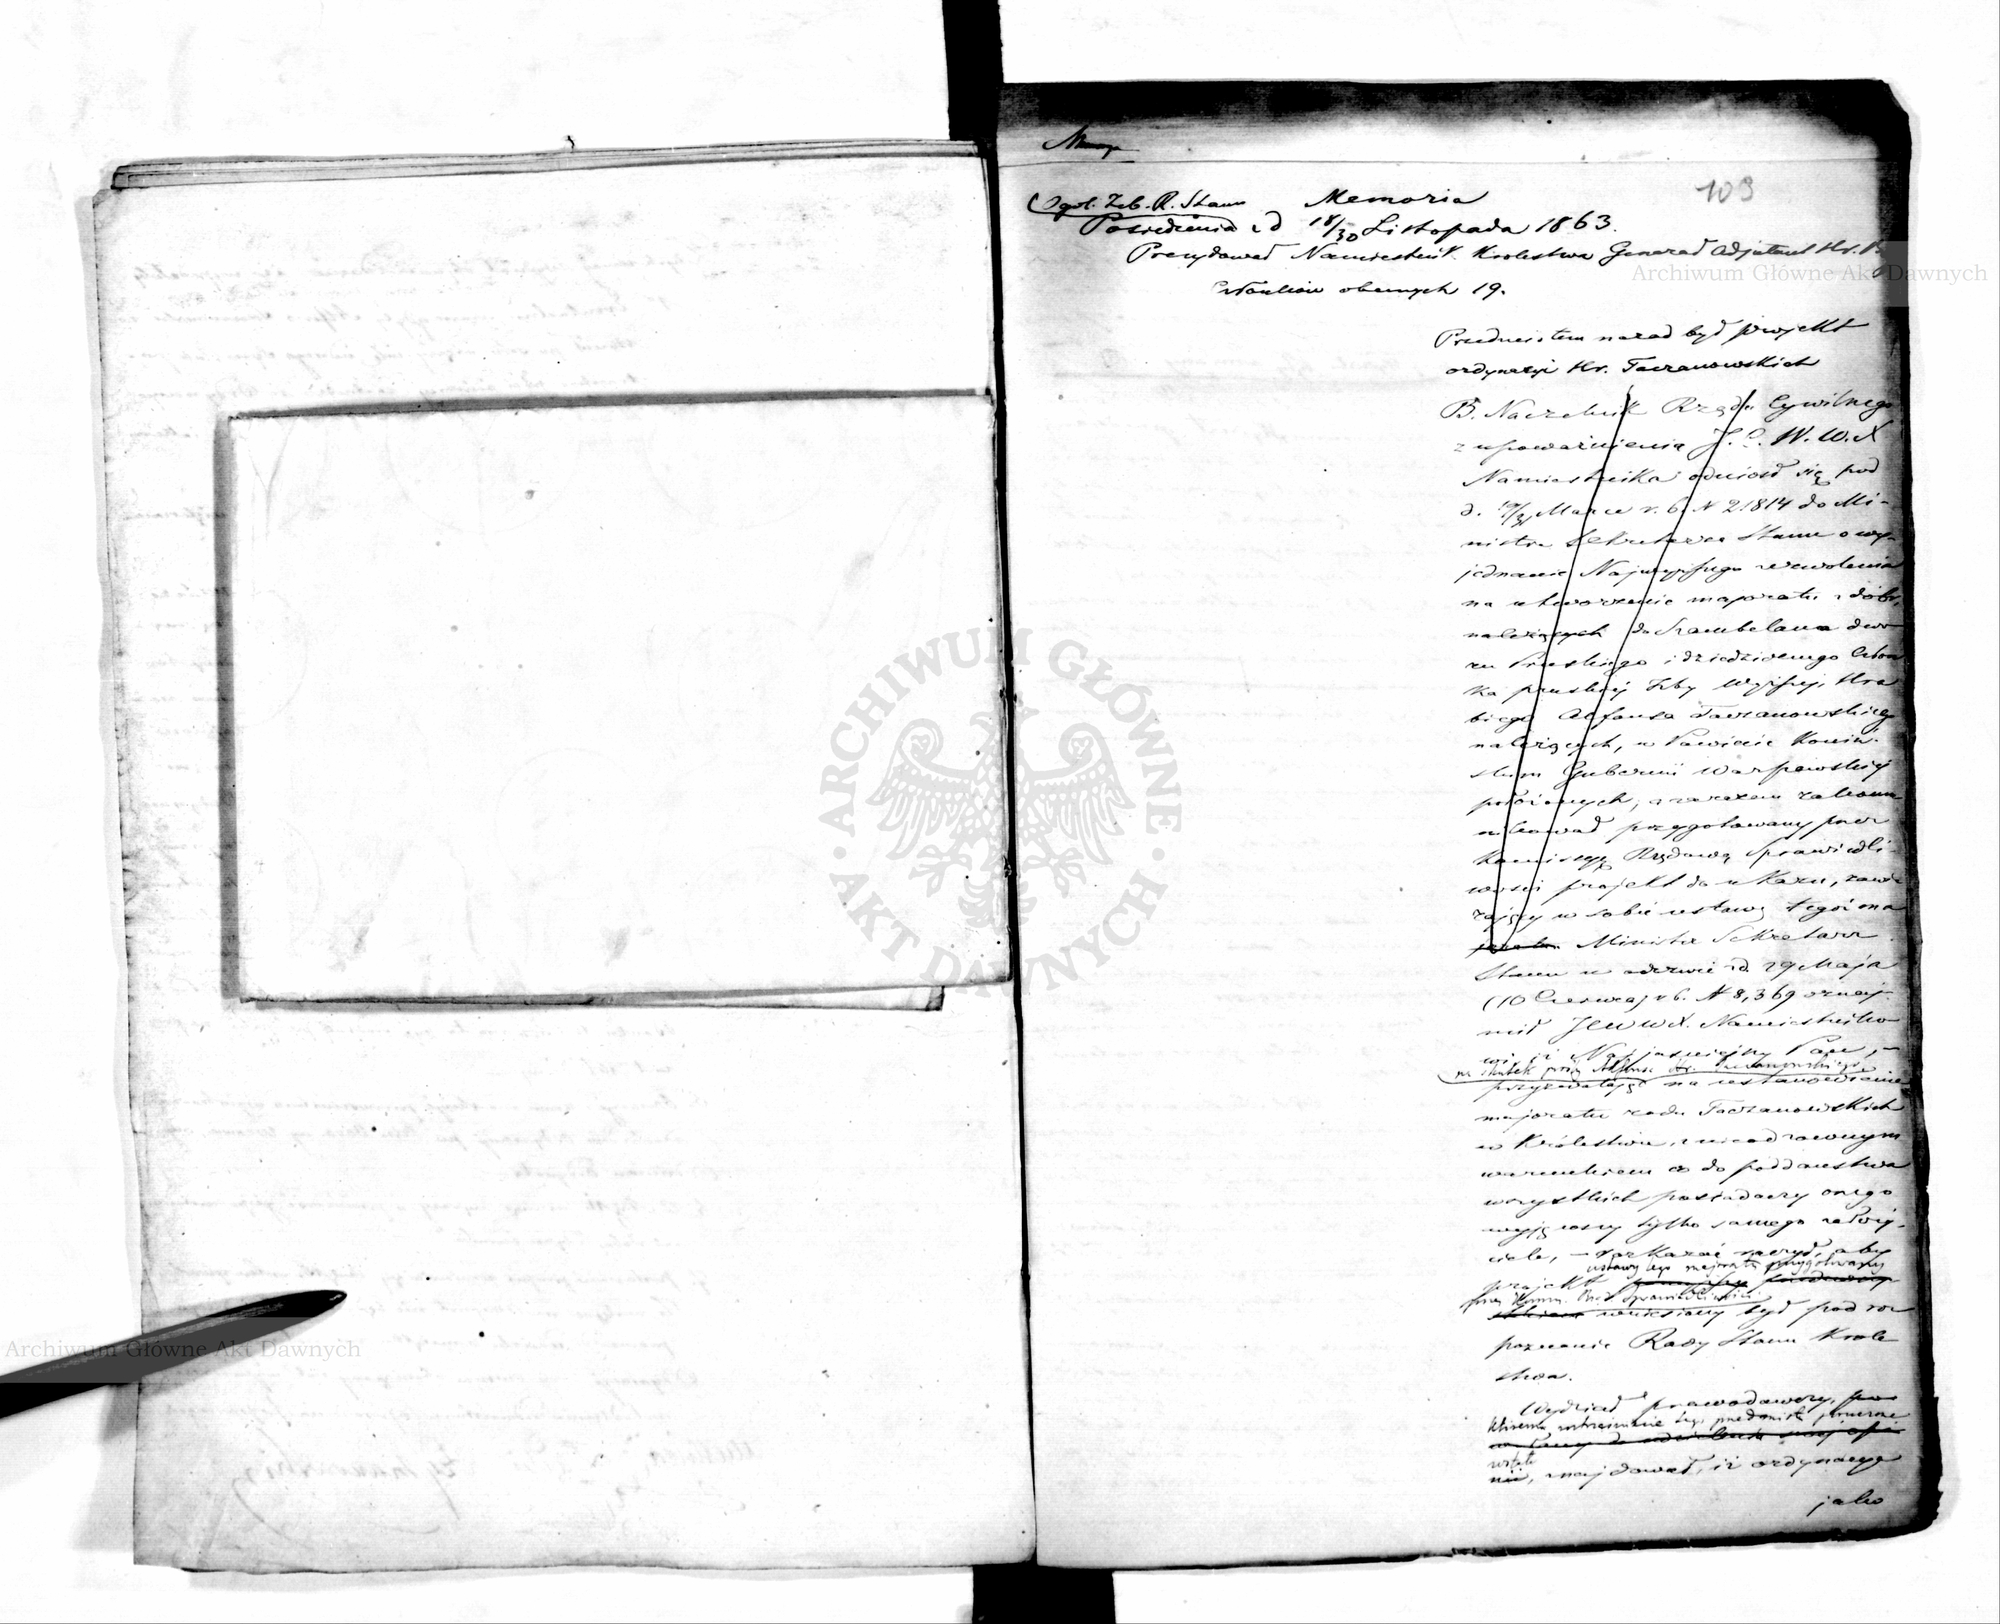 103
Ogól. Zeb. R. Stanu Memoria
Posiedzenia z d 18/30 Listopada 1863.
Prezydował Namiestnik Królestwa Generał Adjutant Hr. B
Członków obecnych 19.
Przedmiotem narad był projekt
ordynacyi Hr. Taczanowskich
B. Naczelnik Rządu Cywilnego
z upoważnienia J. C. W. W. X
Namiestnika odniósł się pod
d. 19/31 Marca r. b. N 21814 do Mi-
nistra Sekretarza Stanu o wy-
jednanie Najwyższego zezwolenia
na utworzenie majoratu z dóbr,
należących do Szambelana dwo-
ru Pruskiego i dziedzicznego Człon
ka pruskiej Izby Wyższej, Hra
biego Alfonsa Taczanowskiego
należących, w Powiecie Koniń-
skim Gubernii Warszawskiej
położonych, a zarazem zakomu
nikował przygotowany przez
Kommissyę Rządową Sprawiedli-
wości projekt do ukazu, zawie
rający w sobie ustawę tegoż ma
joratu Minister Sekretarz
Stanu w odezwie z d. 29 Maja
(10 Czerwca) r. b. N 8,369 oznaj-
mił JCWWX. Namiestniko
wi, iż Najjaśniejszy Pan, –
na skutek prośby Alfonsa Hr. Taczanowskiego
przyzwalając na ustanowienie
majoratu rodu Taczanowskich
w Królestwie, z nieodzownym
warunkiem co do poddaństwa
wszystkich posiadaczy onego
wyjąwszy tylko samego założy-
ciela, – rozkazać raczył, aby
ustawy tego majoratu przygotowany
projekt
przez Komm. Rząd. Sprawiedliwości
wniesiony był pod roz
poznanie Rady Stanu Króle
stwa.
Wydział prawodawczy,
któremu roztrząśnienie tego przedmiotu
znajdował, iż ordynacya
jako
Archiwum Główne Akt Dawnych
Archiwum Główne Akt Dawnych
ARCHIWUM GŁÓWNE · AKT DAWNYCH ·